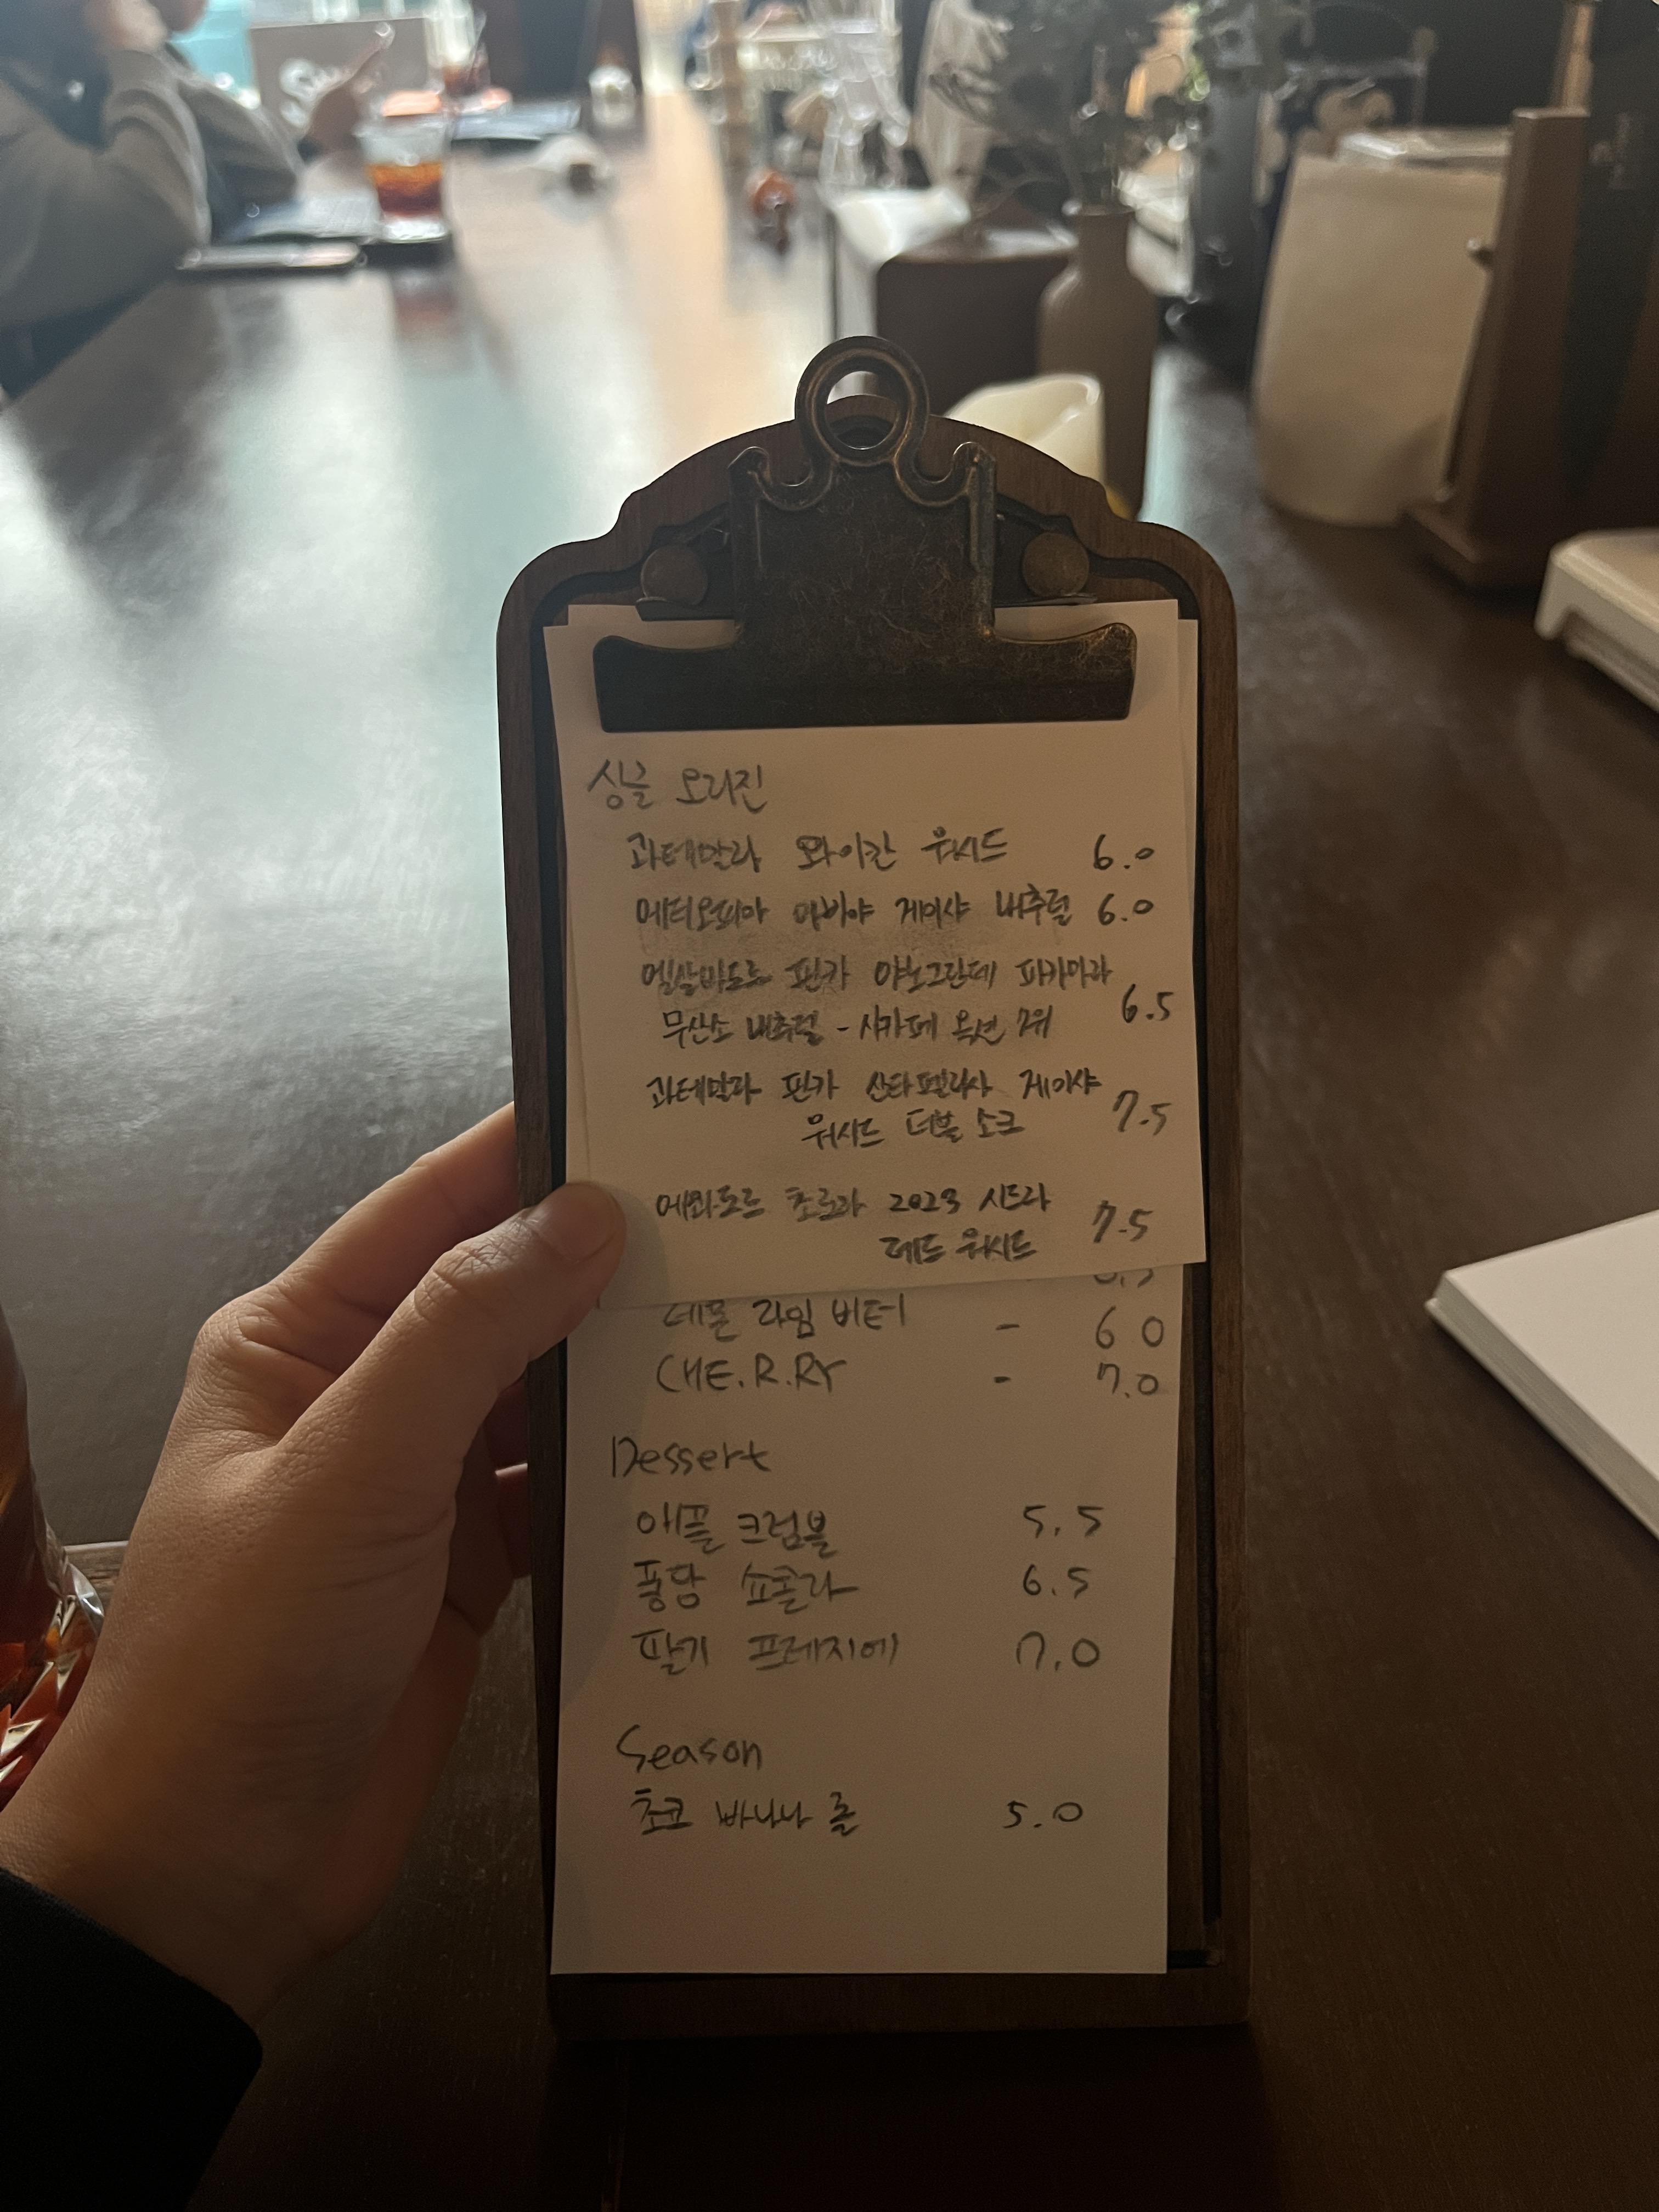 싱글 오리진
과테말라 와이칸 워시드 6.0
에티오피아 아바야 게이샤 내추럴 6.0
엘살바도르 핀카 야노그란데 파카마라
무산소 내추럴 - 시카페 옥션 7위 6.5
과테말라 핀카 산타펠리사 게이샤
워시드 더블 소크 7.5
에콰도르 초로라 2023 시드라
레드 워시드 7.5
라임 버터 - 6 0
CHE.R.RY - 7.0
Dessert
애플 크럼블 5.5
퐁당 쇼콜라 6.5
딸기 프레지에 7.0
Season
초코 바나나 롤 5.0